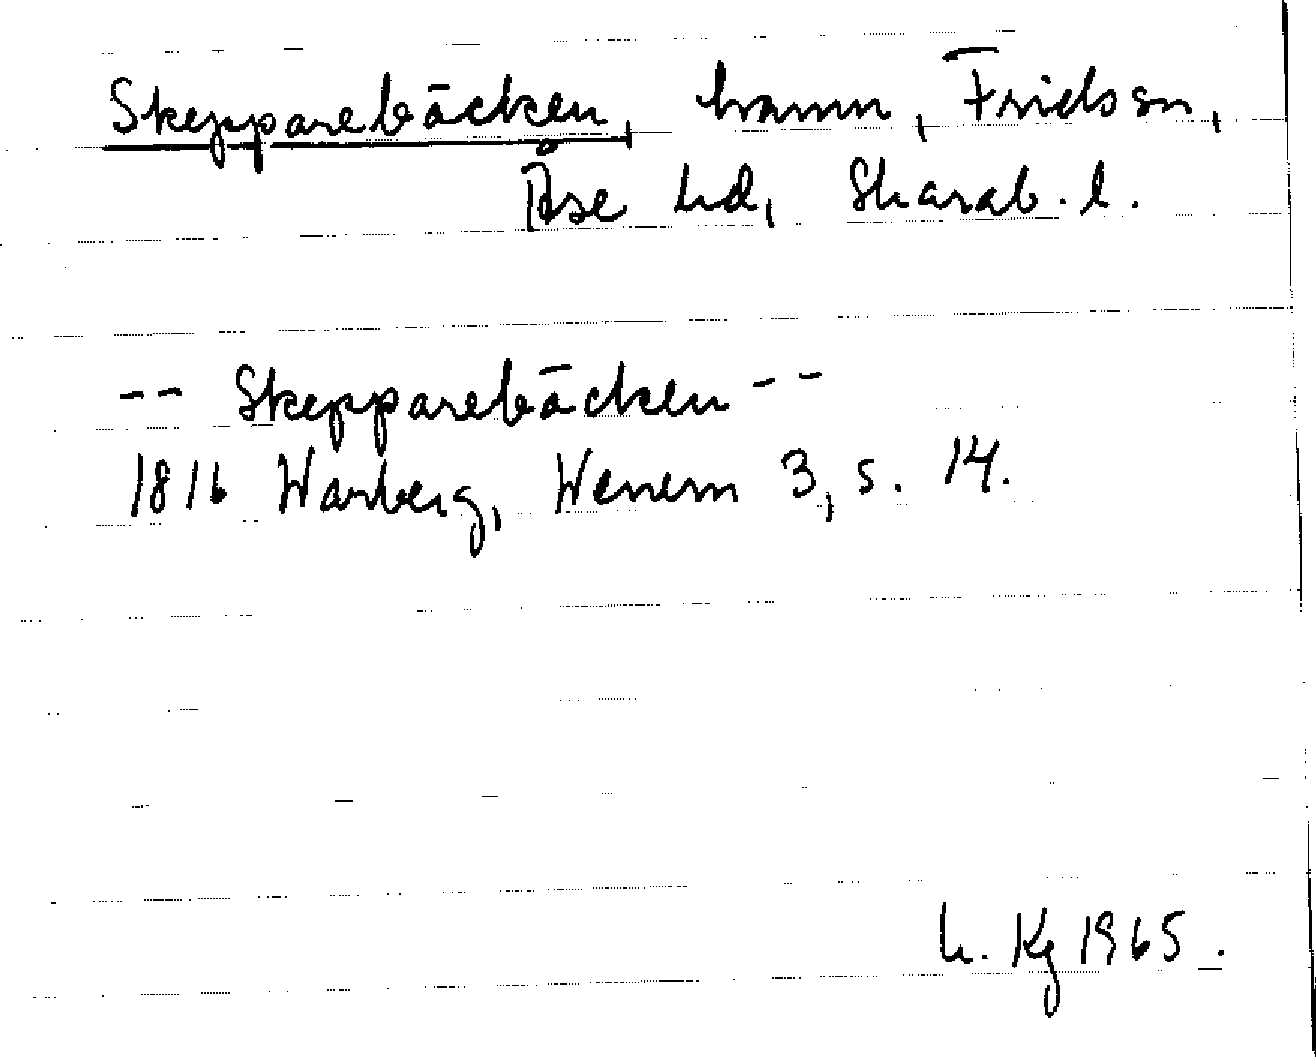 Skepparebäcken, hamn, Fridssn,
Åse hd, Skarab. l.
-- Skepparebäcken --
1816 Warberg, Wenern 3, s. 14.
h. Kg 1965.